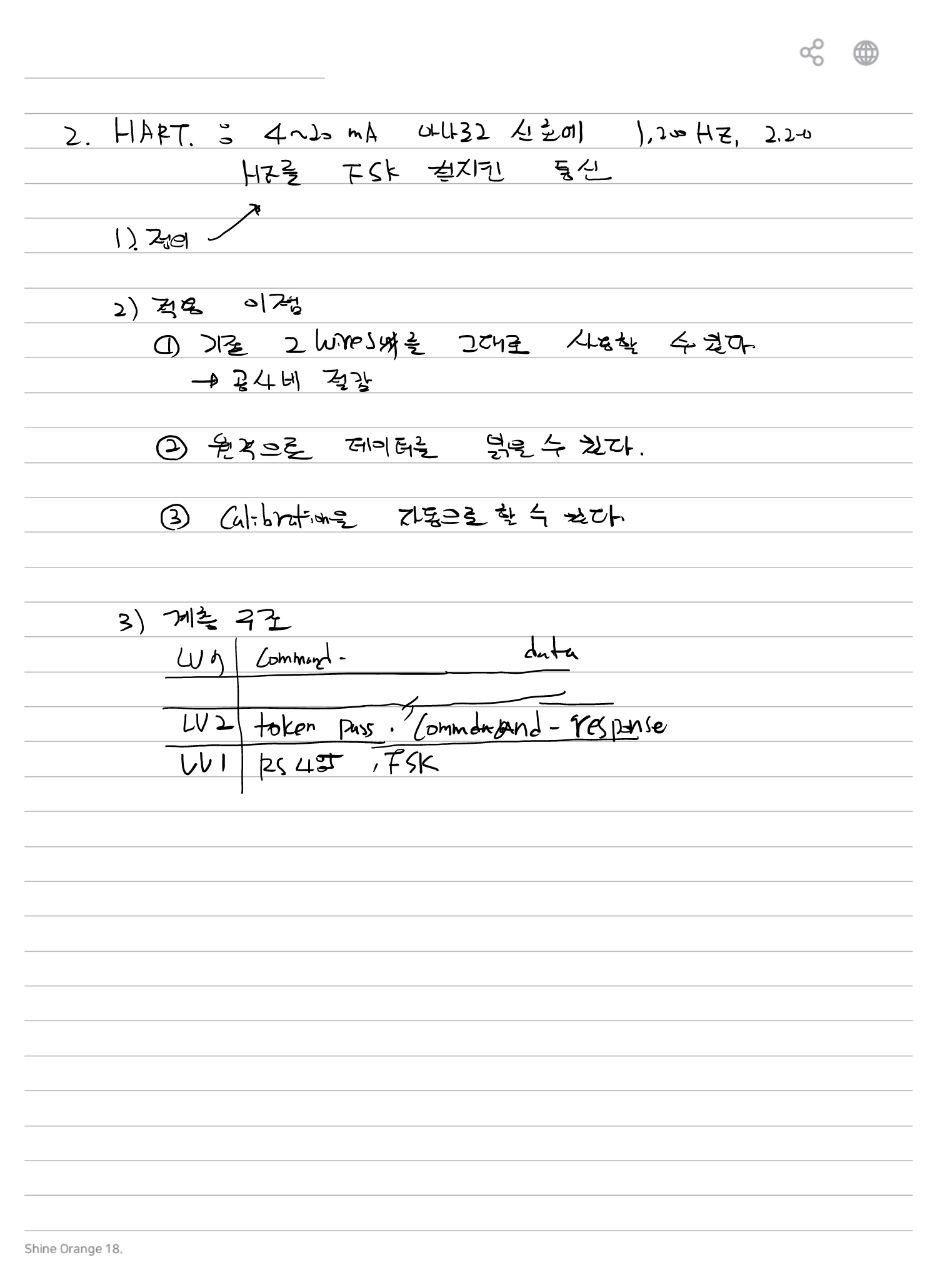 2. HART. 은 4~20 mA 아나로그 신호에 1,200 HZ, 2.20
HZ를 FSK 첨지킨 통신
1). 정의
2) 적용 이점
① 기존 2 wires 를 그대로 사용할 수 있다.
→ 공사비 절감
② 원격으로 데이터를 읽을 수 있다.
③ Calibration을 자동으로 할 수 있다.
3) 계층 구조
LV 7 Command - data
LV 2 token pass. Command - response
LV 1 RS 485, FSK
Shine Orange 18.